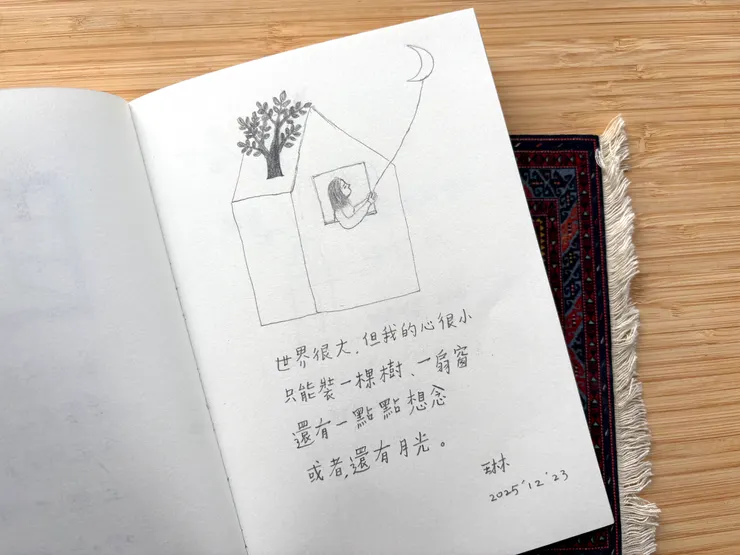 世界很大,但我的心很小
只能裝一棵樹、一扇窗
還有一點點想念
或者,還有月光。
琳
2025'12'23